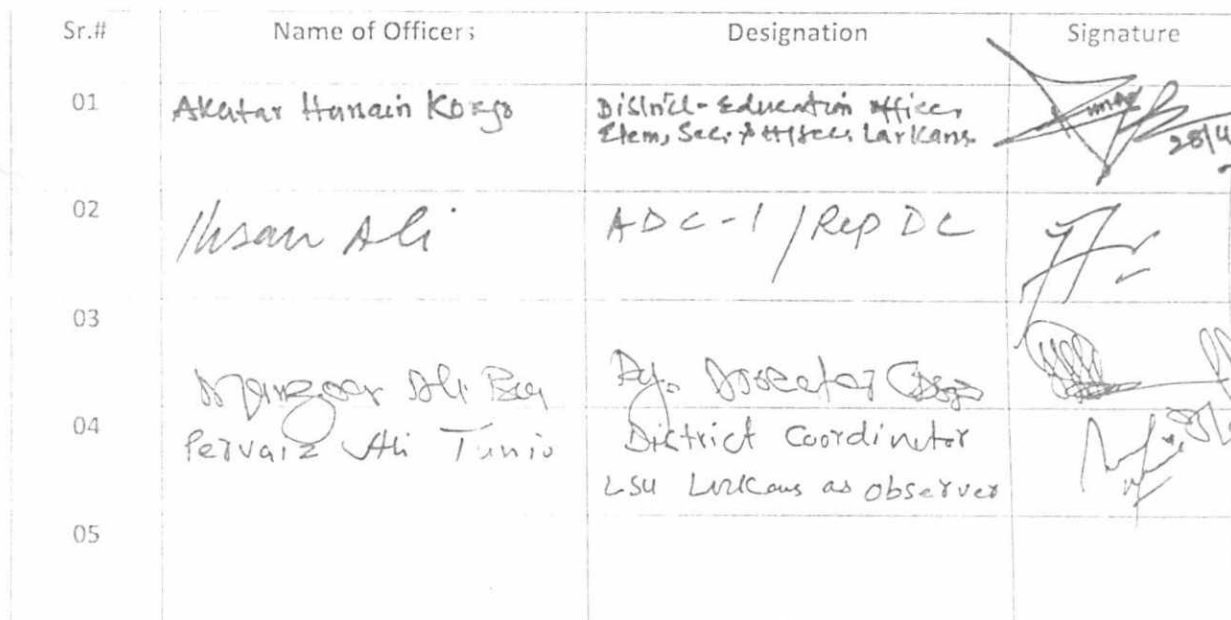 Sr.# Name of Officers Designation Signature
01 Akhtar Hussain Korejo District Education Officer
Elem, Sec: & H/Sec: Larkana
28/4
02 Ihsan Ali ADC-1 / Rep DC
03
Manzoor Ali Dy. Director
04 Pervaiz Ali Tunio District Coordinator
LSU Larkana as observer
05